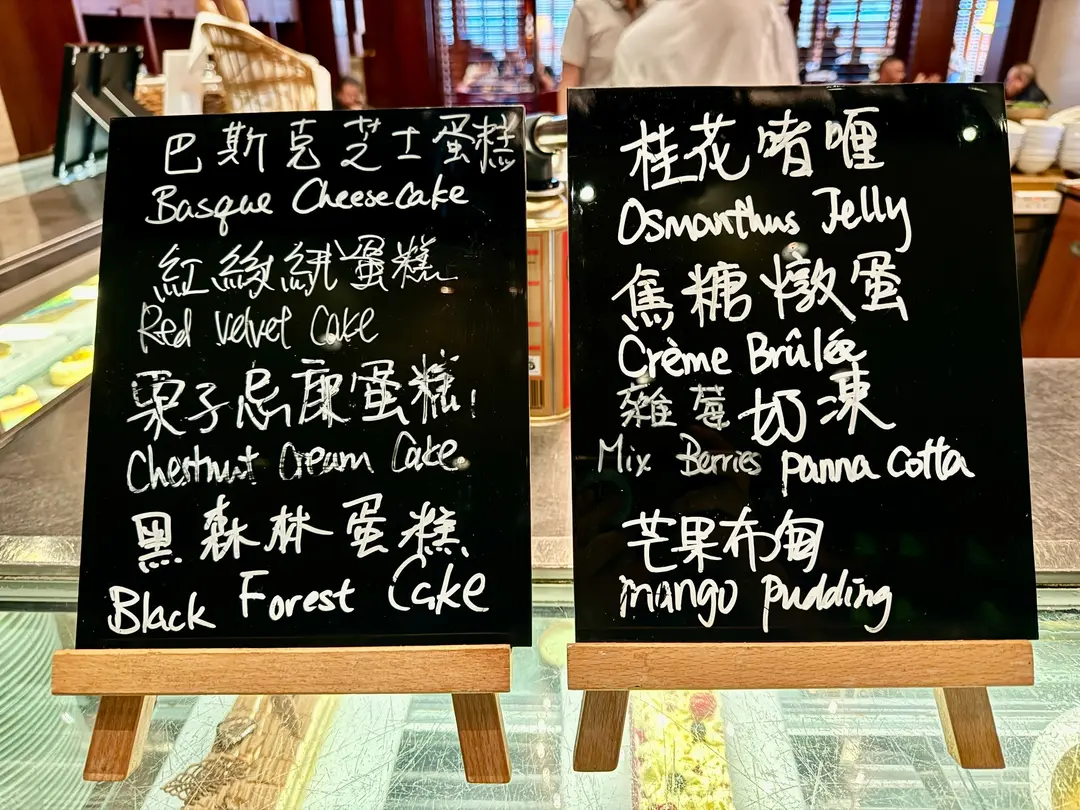 巴斯克芝士蛋糕
Basque Cheesecake
紅絲絨蛋糕
Red Velvet Cake
栗子忌廉蛋糕
Chestnut Cream Cake
黑森林蛋糕
Black Forest Cake
桂花啫喱
Osmanthus Jelly
焦糖燉蛋
Crème Brûlée
雜莓奶凍
Mix Berries Panna Cotta
芒果布甸
mango pudding